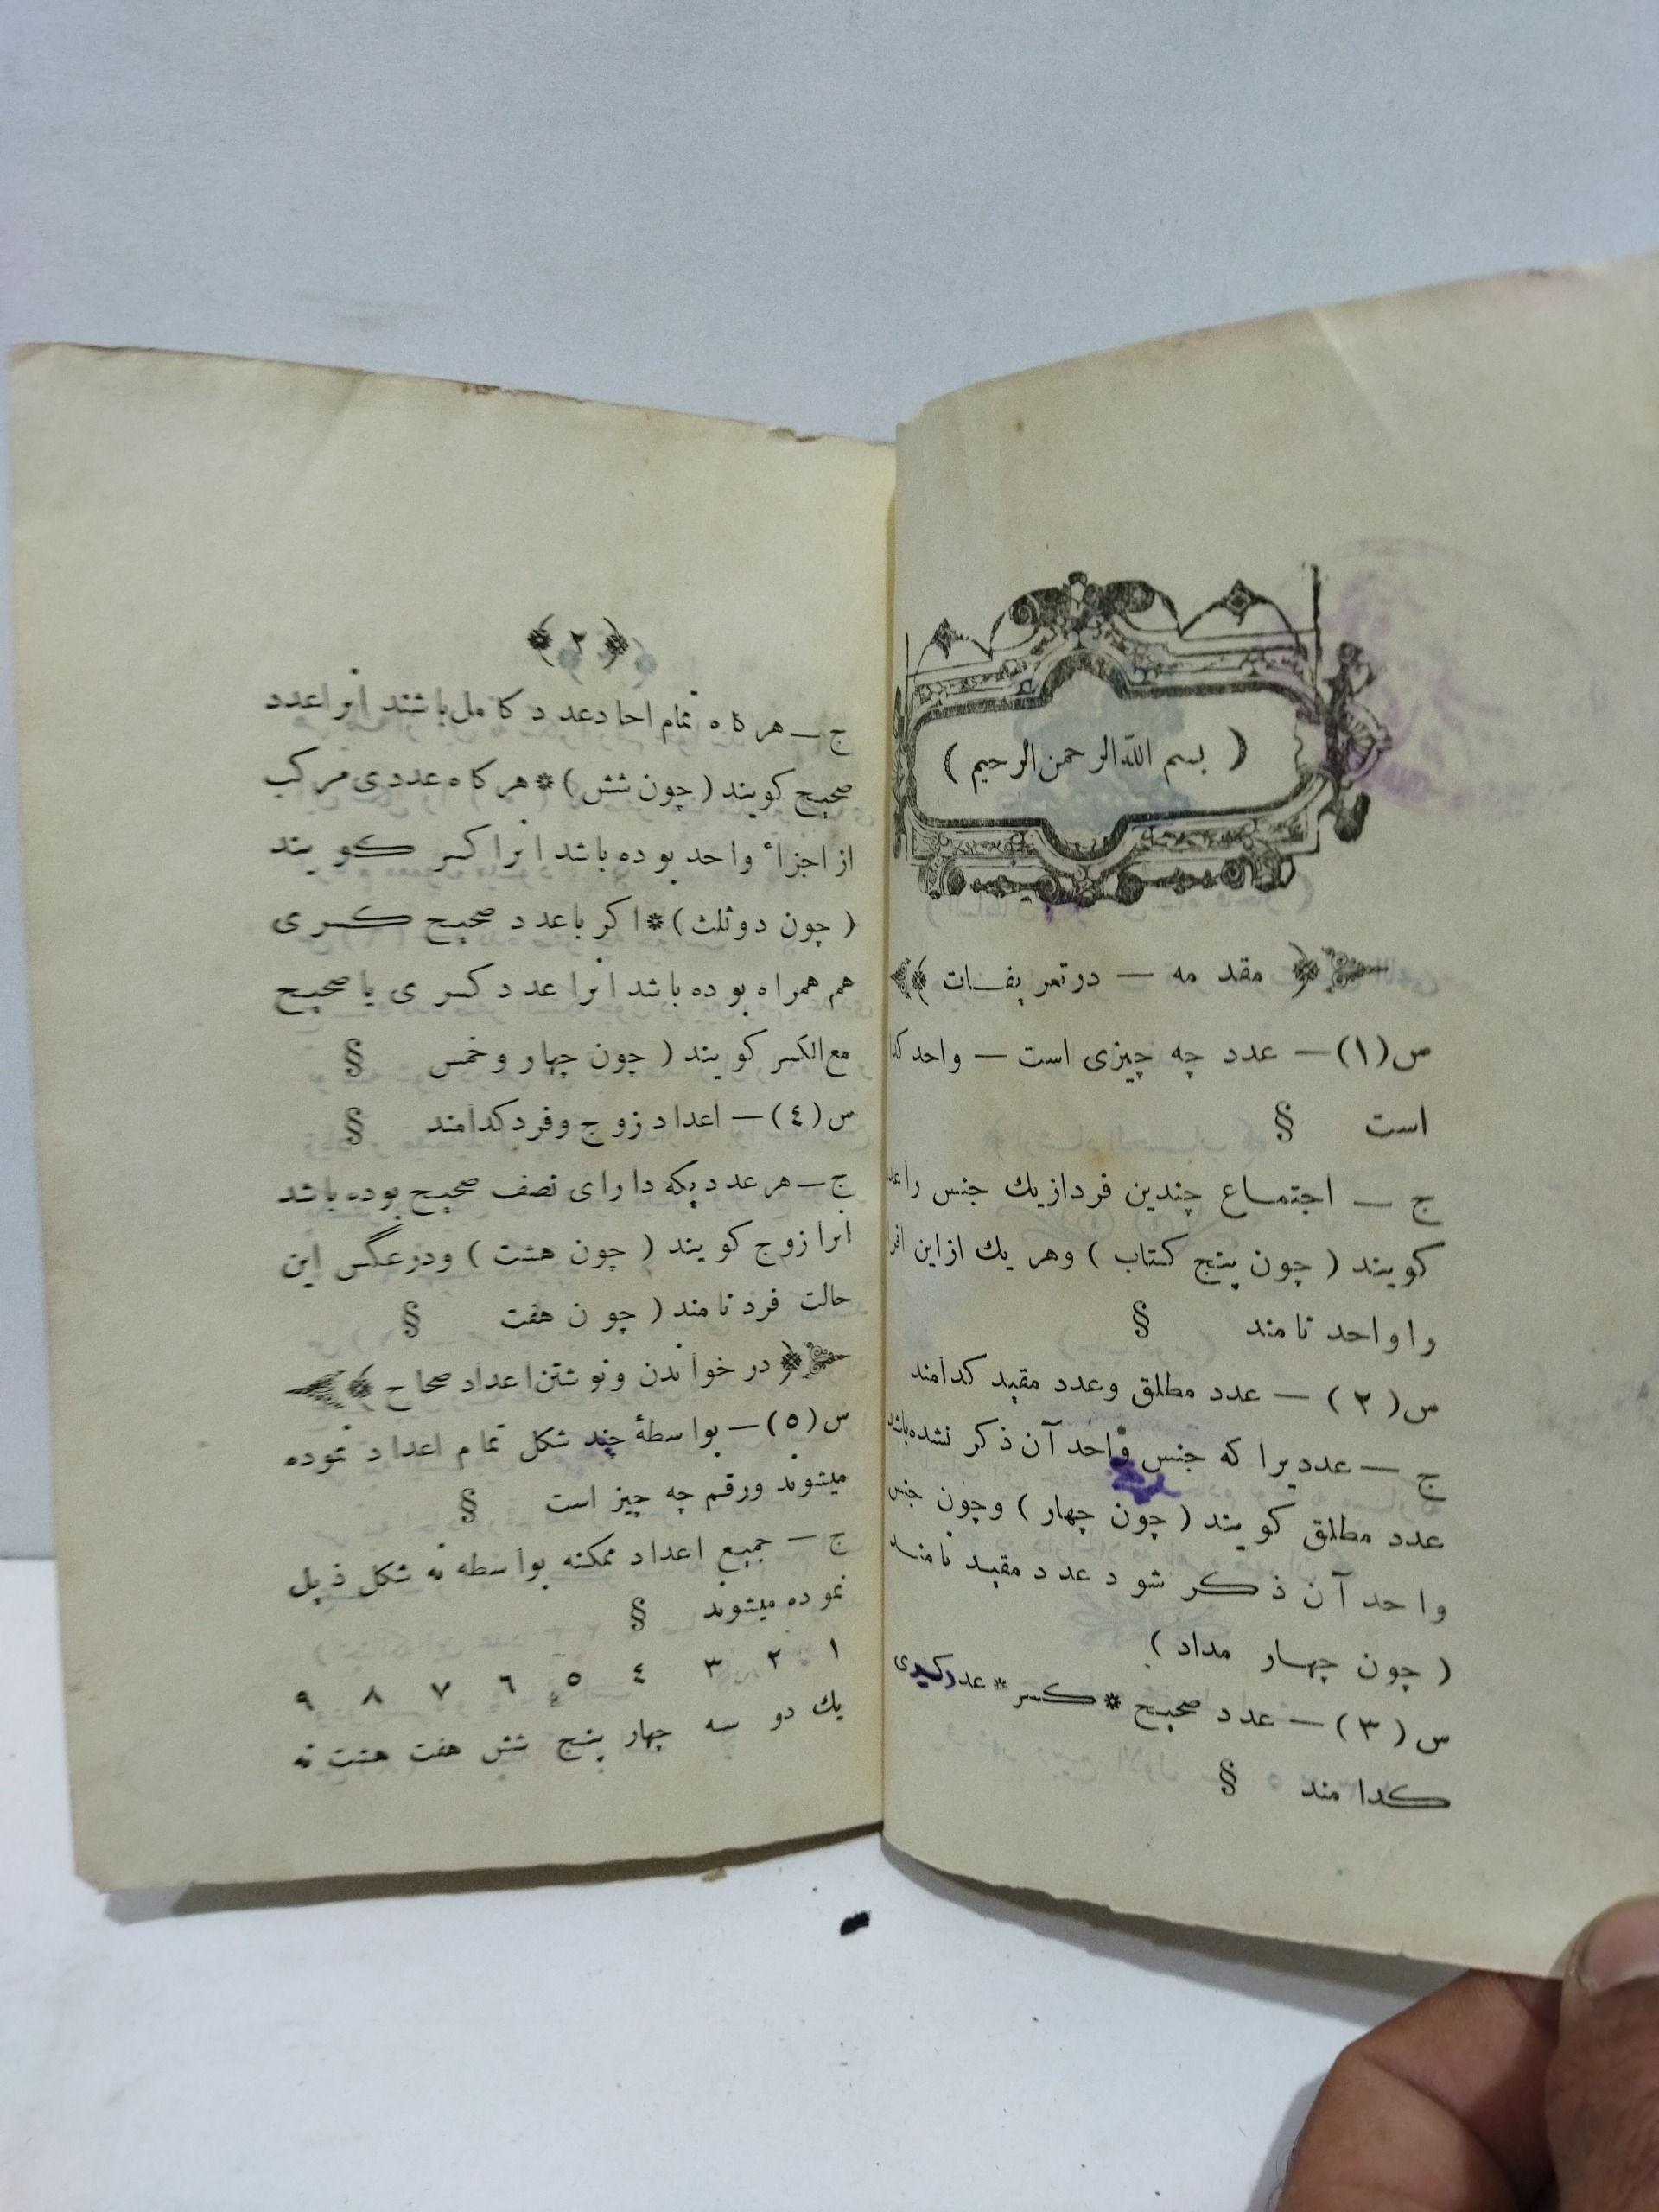 ( بسم الله الرحمن الرحیم )
مقدمه — در تعریفات
س (١) — عدد چه چیزی است — واحد کدا
است §
ج — اجتماع چندین فرد از یك جنس را عدد
کویند ( چون پنج کتاب ) وهر یك از این افرا
را واحد نامند §
س ( ٢ ) — عدد مطلق وعدد مقید کدامند
ج — عددیرا که جنس واحد آن ذکر نشده باشد
عدد مطلق کویند ( چون چهار ) وچون جنس
واحد آن ذکر شود عدد مقید نامند
( چون چهار مداد )
س ( ٣ ) — عدد صحیح * کسر * عدد کسری
کدامند §
﴿ ٢ ﴾
ج — هرکاه تمام احاد عدد کامل باشند انرا عدد
صحیح کویند ( چون شش ) * هرکاه عددی مرکب
از اجزاء واحد بوده باشد انرا کسر کویند
( چون دوثلث ) * اکر باعدد صحیح کسری
هم همراه بوده باشد انرا عدد کسری یا صحیح
مع الکسر کویند ( چون چهار وخمس §
س ( ٤ ) — اعداد زوج وفرد کدامند §
ج — هر عددیکه دارای نصف صحیح بوده باشد
انرا زوج کویند ( چون هشت ) ودر عکس این
حالت فرد نامند ( چون هفت §
در خواندن ونوشتن اعداد صحاح
س ( ٥ ) — بواسطهٔ چند شکل تمام اعداد نموده
میشوند ورقم چه چیز است §
ج — جمیع اعداد ممکنه بواسطه نه شکل ذیل
نموده میشوند §
١ ٢ ٣ ٤ ٥ ٦ ٧ ٨ ٩
یك دو سه چهار پنج شش هفت هشت نه